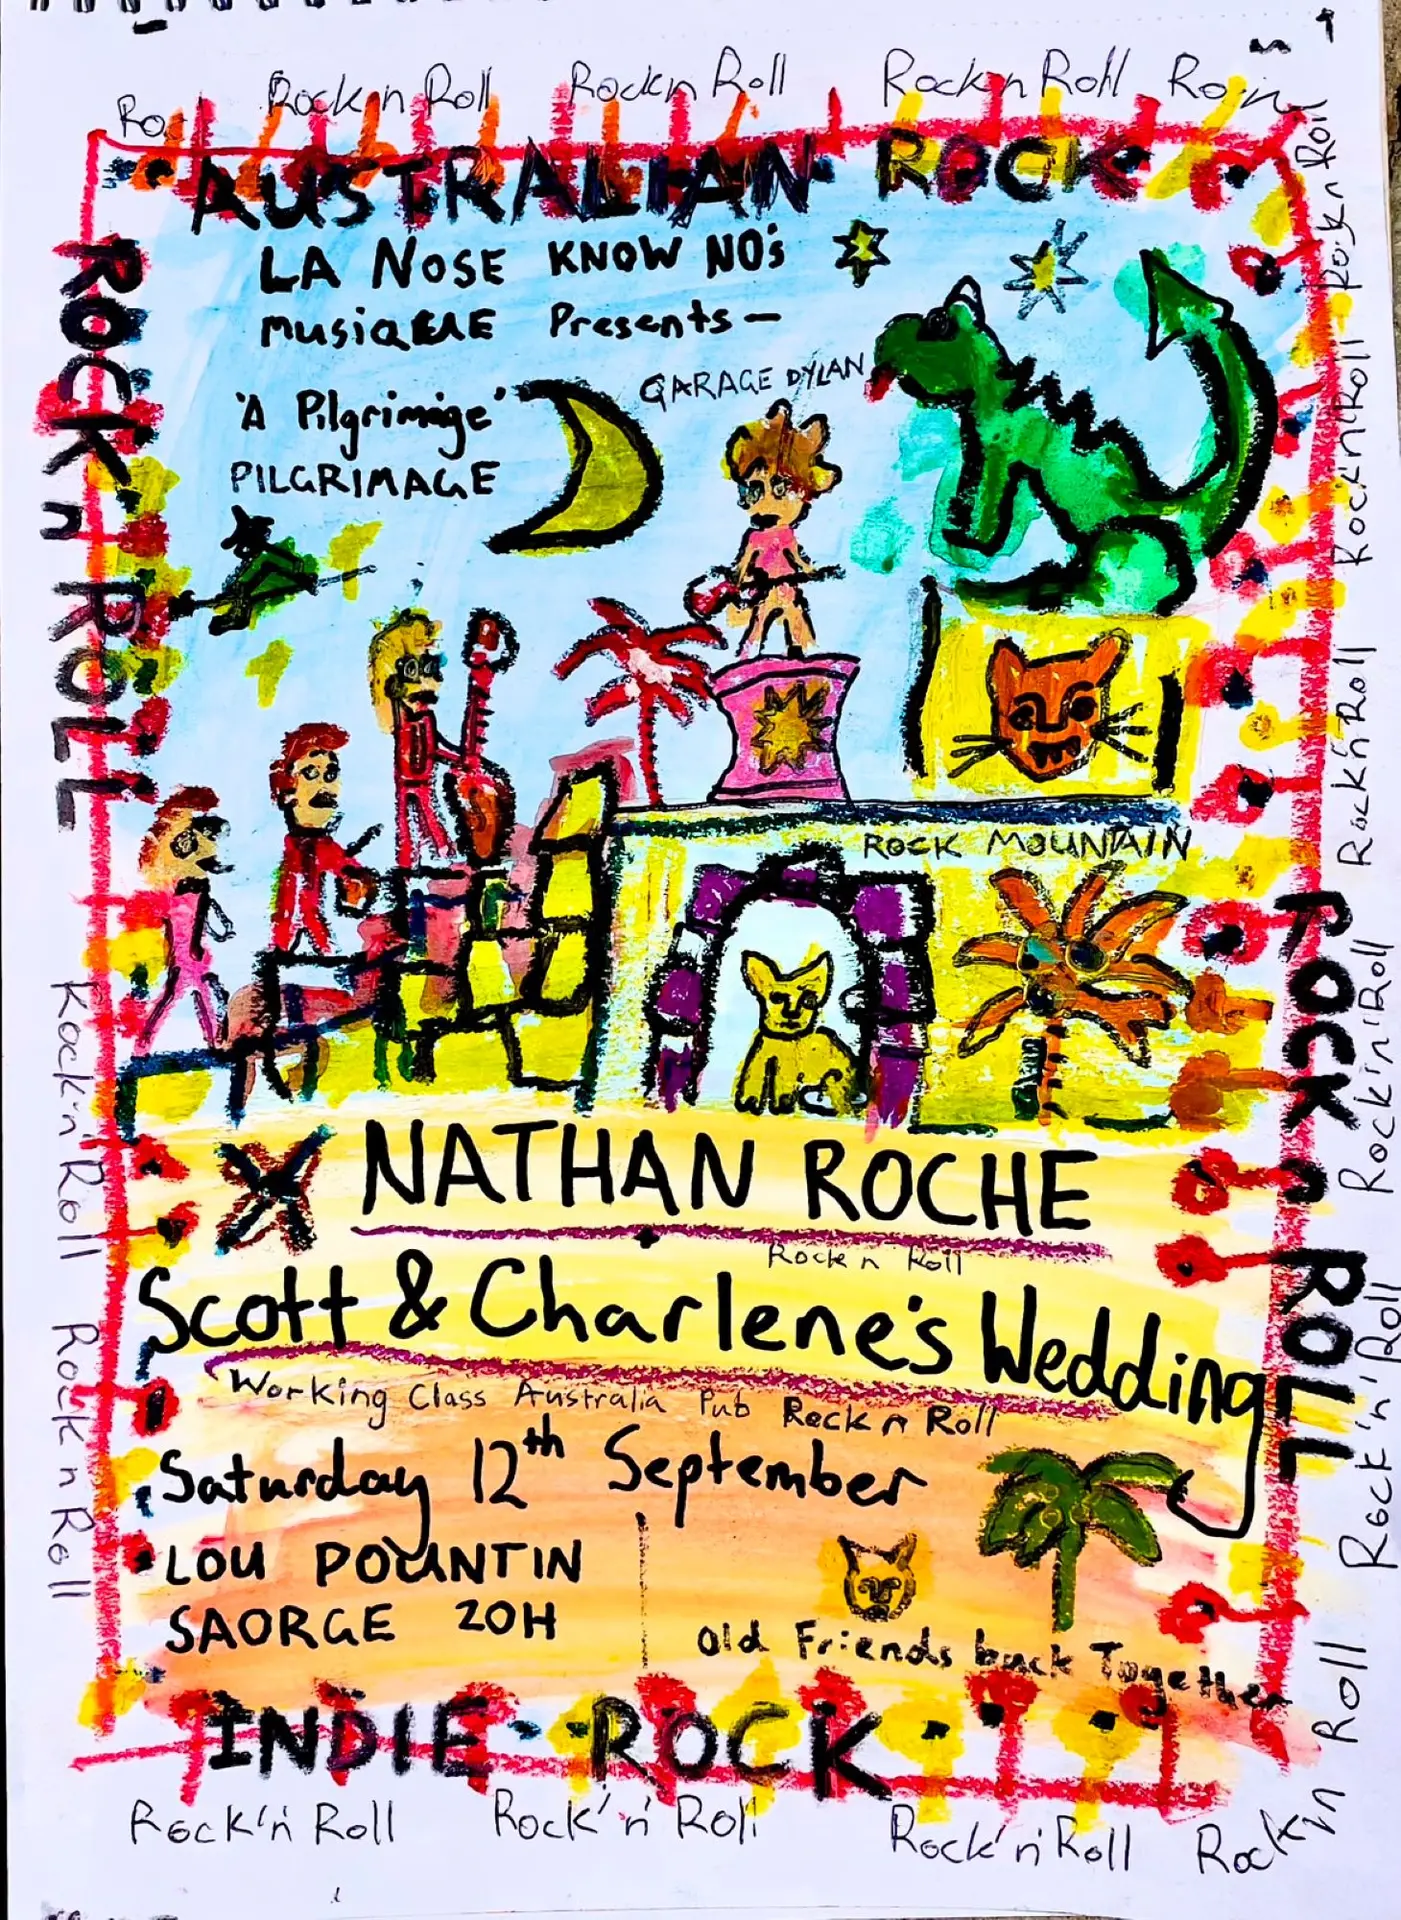 Rock n Roll
Rock n Roll
Rock n Roll
AUSTRALIAN ROCK
LA NOSE KNOW NO's
musiqueE Presents —
'A Pilgrimige'
PILGRIMAGE
GARAGE DYLAN
ROCK n ROLL
ROCK MOUNTAIN
NATHAN ROCHE
Rock n Roll
Scott & Charlene's Wedding
Working Class Australia Pub Rock n Roll
Saturday 12th September
LOU POUNTIN
SAORGE 20H
Old Friends back Together
INDIE ROCK
ROCK n ROLL
Rock'n' Roll
Rock n Roll
Rock n Roll
Rock n Roll
Rock n Roll
Rock'n'Roll
Rock'n'Roll
Rock'n'Roll
Rock'n'Roll
Rock'n' Roll
Rock 'n' Roll
Rock'n'Roll